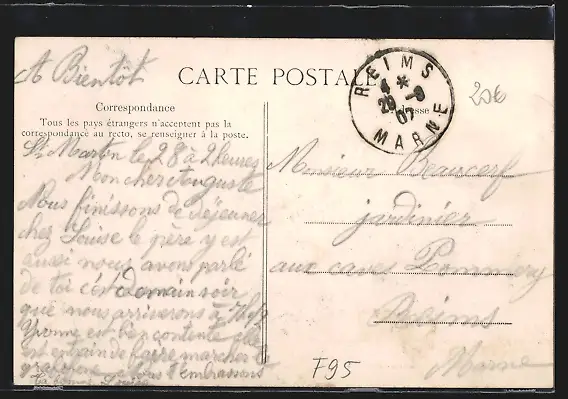 A Bientôt
CARTE POSTALE
REIMS
4 *
29 -9
07
MARNE
20€
Correspondance
Adresse
Tous les pays étrangers n'acceptent pas la
correspondance au recto, se renseigner à la poste.
St Martin le 28 à 2 heures
Mon cher Auguste
Nous finissons de déjeuner
chez Louise le père y est
aussi nous avons parlé
de toi c'est domain soir
que nous arriverons à
Yvonne est bien contente elle
est entrain de faire marcher le
nous t'embrassons
Louise
Monsieur Beaucerf
jardinier
aux caves Pommery
Reims
Marne
F95